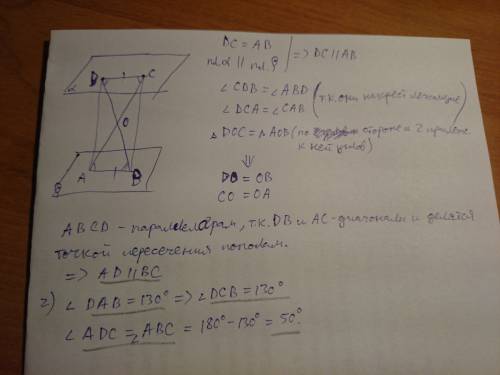 DC = AB
пл. α || пл. β => DC || AB
∠CDB = ∠ABD
∠DCA = ∠CAB (т.к. они накрест лежащие)
△DOC = △AOB (по стороне и 2 прилеж.
к ней углов)
⇓
DO = OB
CO = OA
D C
α
O
A B
β
ABCD - параллелограм, т.к. DB и AC - диагонали и делятся
точкой пересечения пополам.
=> AD || BC
2) ∠DAB = 130° => ∠DCB = 130°
∠ADC = ∠ABC = 180° - 130° = 50°.